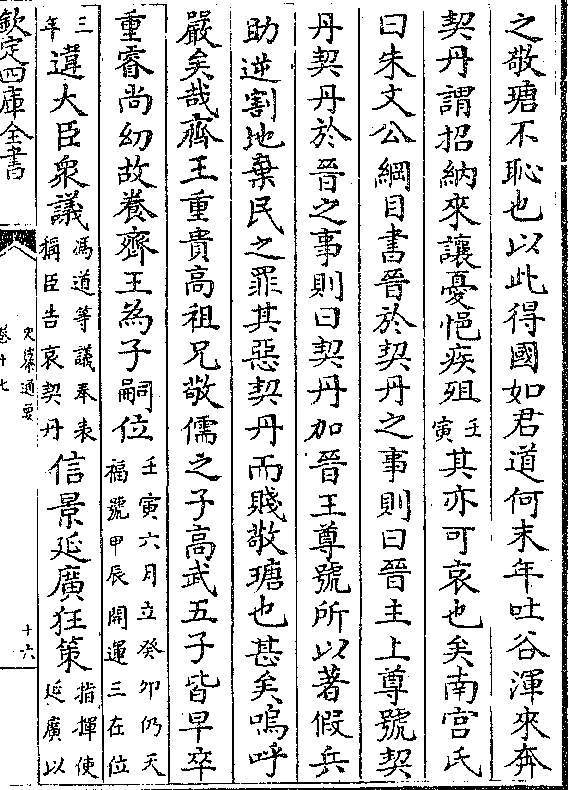 之敬瑭不恥也以此得國如君道何末年吐谷渾來奔
契丹謂招納來讓憂悒疾殂壬寅其亦可哀也矣南宫氏
曰朱文公綱目書晉於契丹之事則曰晉主上尊號契
丹契丹於晉之事則曰契丹加晉王尊號所以著假兵
助逆割地棄民之罪其惡契丹而賤敬瑭也甚矣嗚呼
嚴矣哉齊王重貴高祖兄敬儒之子高武五子皆早卒
重睿尚幼故養齊王為子嗣位壬寅六月立癸卯仍天福號甲辰開運三在位
三年違大臣衆議馮道等議奉表稱臣告哀契丹信景延廣狂策指揮使延廣以
欽定四庫全書
史纂通要
卷十七
十六